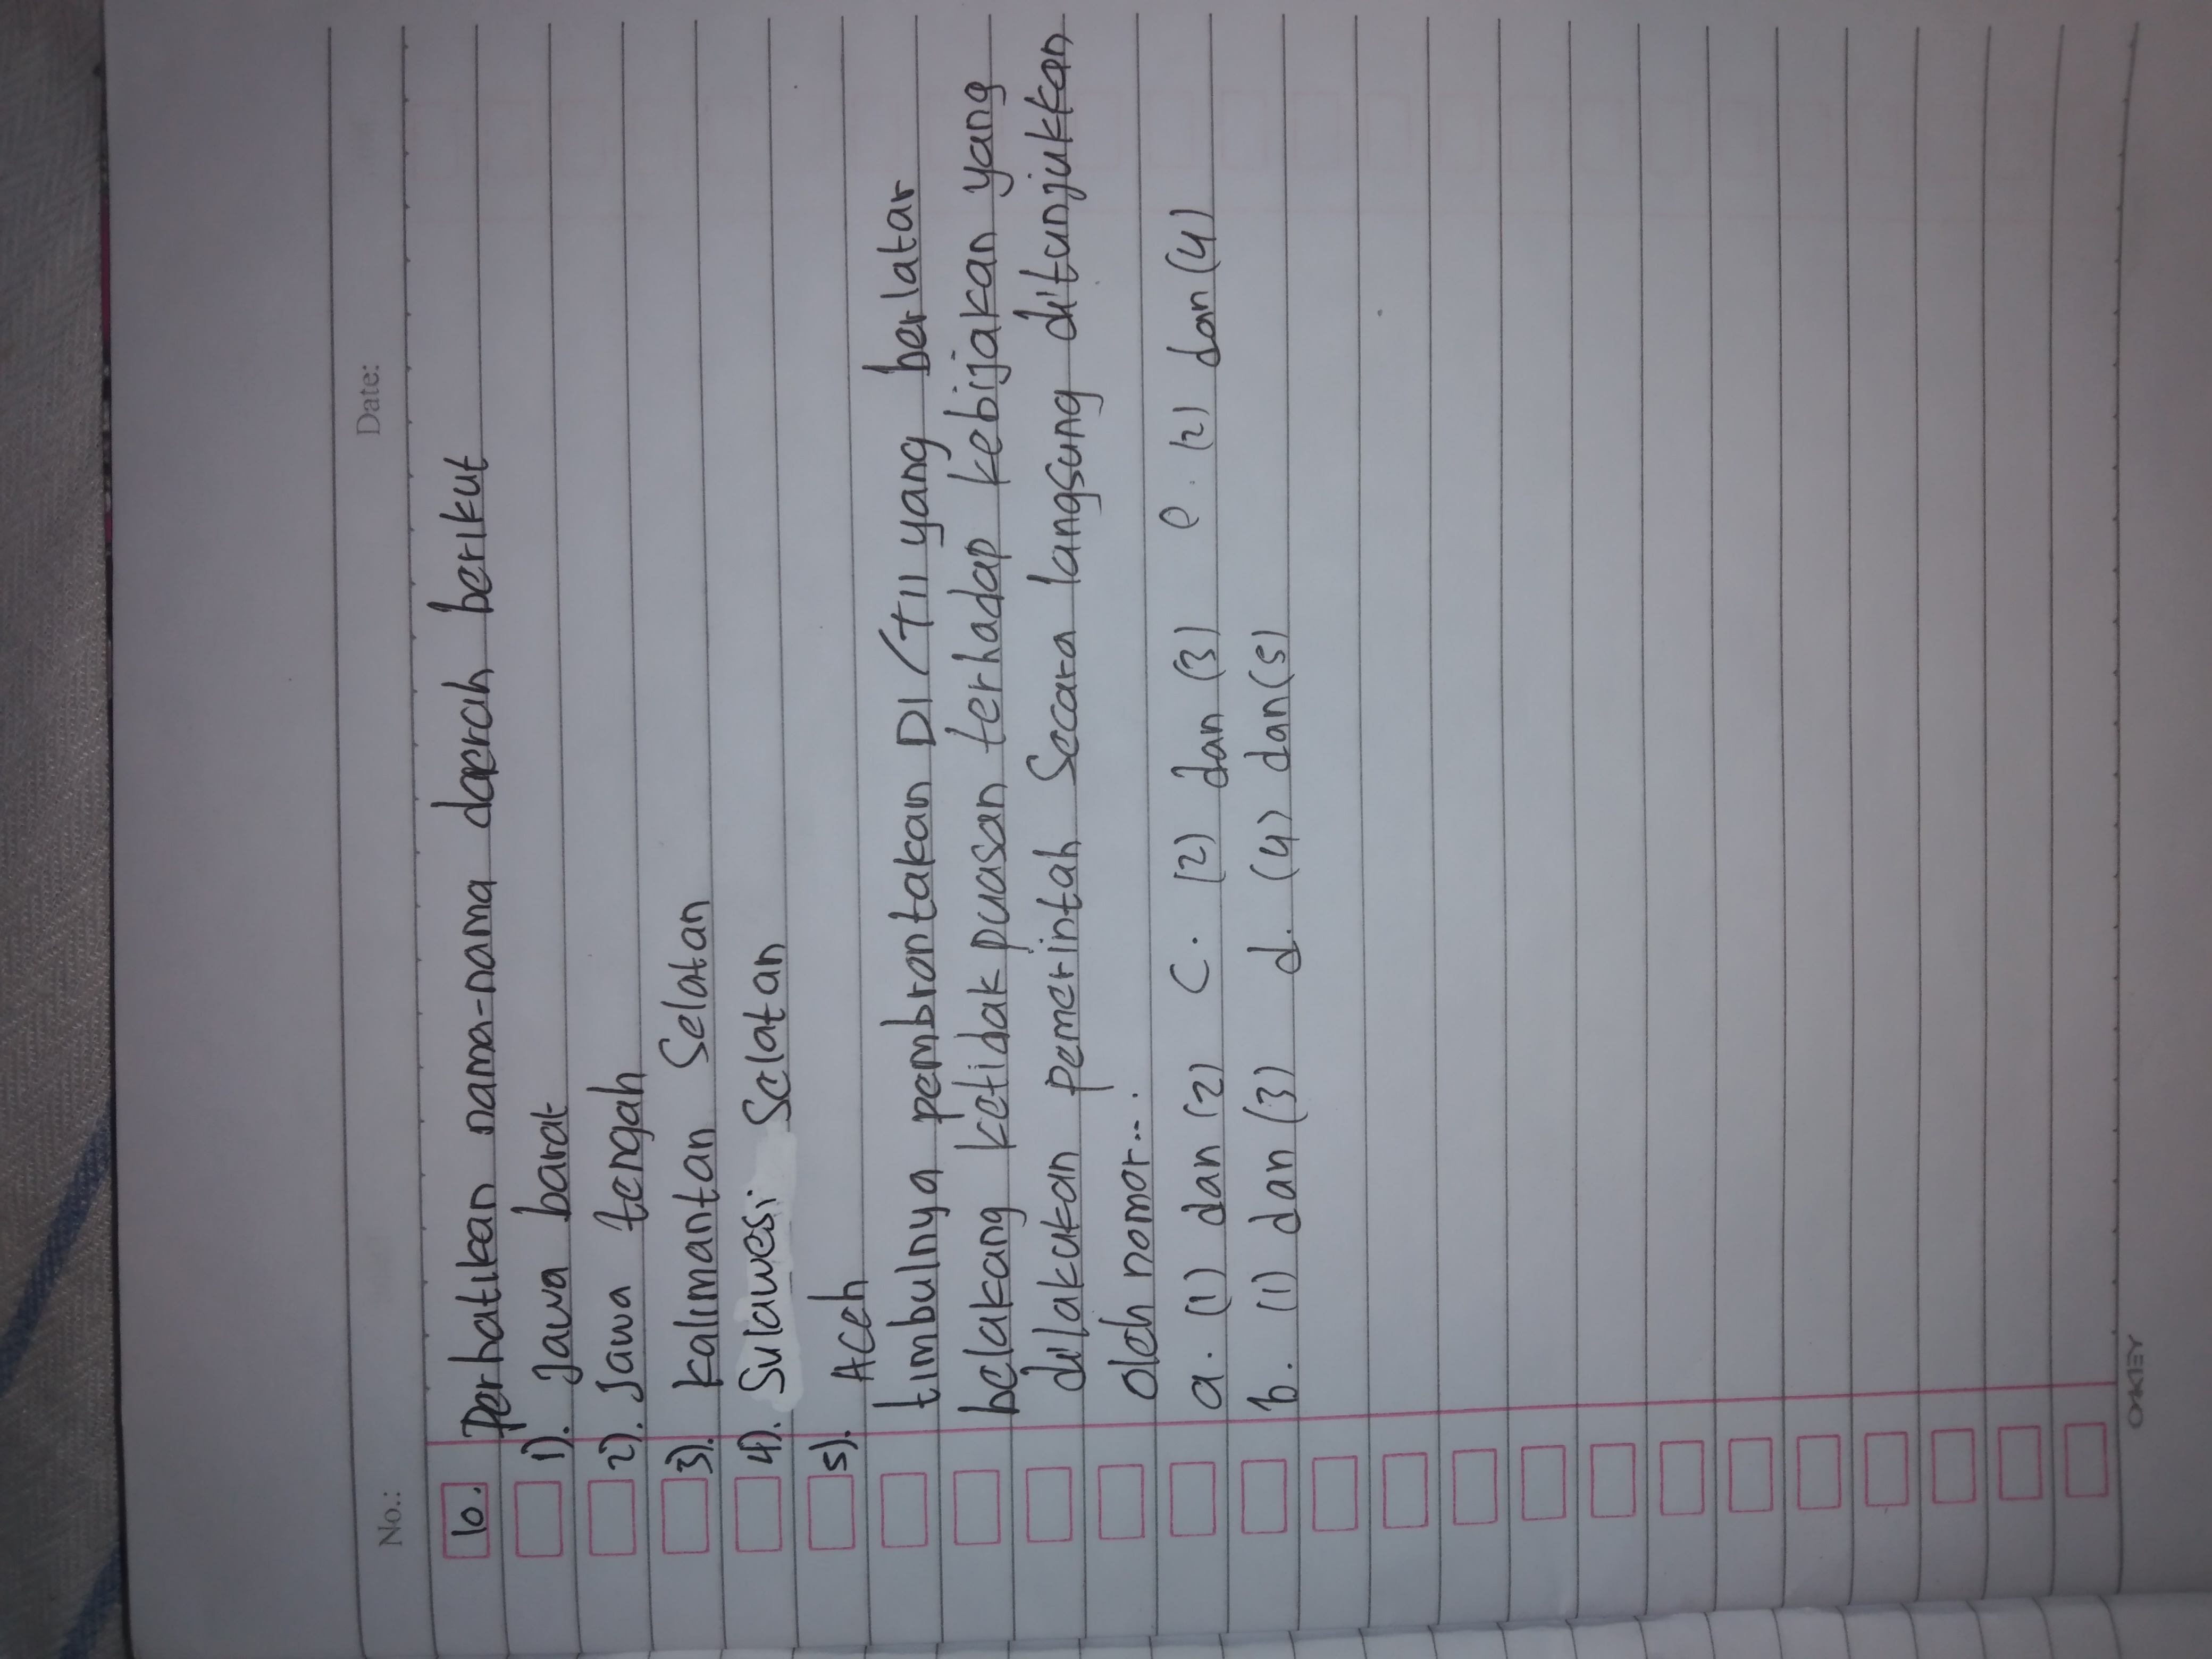 No.:
Date:
6. Perhatikan nama-nama daerah berikut
1). Jawa barat
2). Jawa tengah
3). kalimantan Selatan
4). Sulawesi Selatan
5). Aceh
timbulnya pembrontakan DI/TII yang berlatar
belakang ketidak puasan terhadap kebijakan yang
dilakukan pemerintah Secara langsung ditunjukkan
oleh nomor...
a. (1) dan (2) c. (2) dan (3) e. (2) dan (4)
b. (1) dan (3) d. (4) dan (5)
OKEY